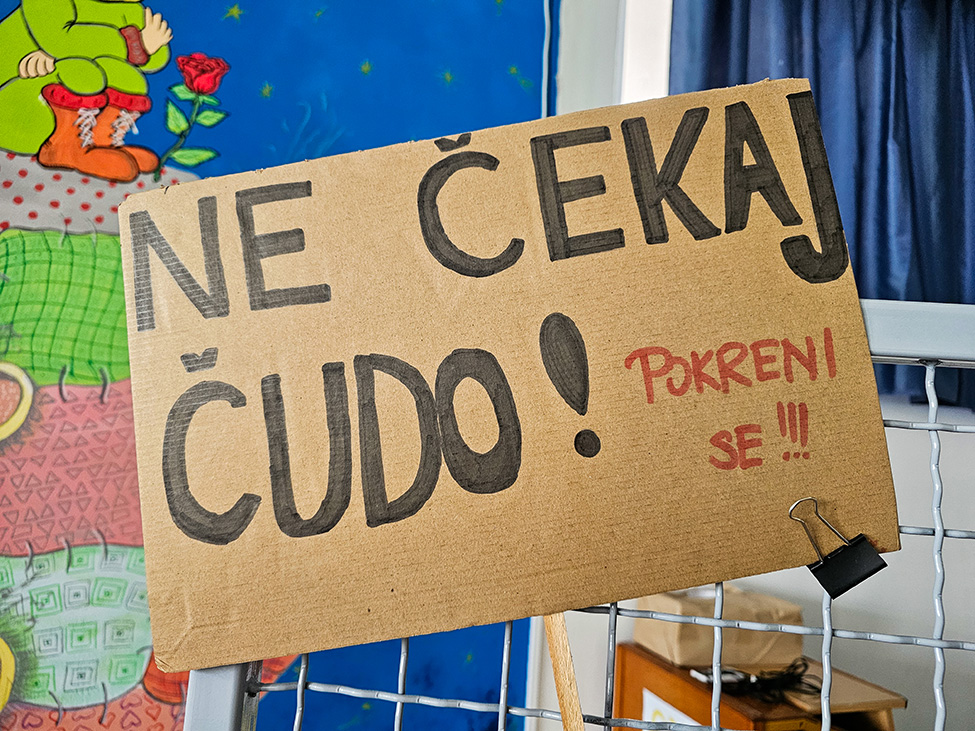 NE ČEKAJ
ČUDO!
POKRENI
SE !!!